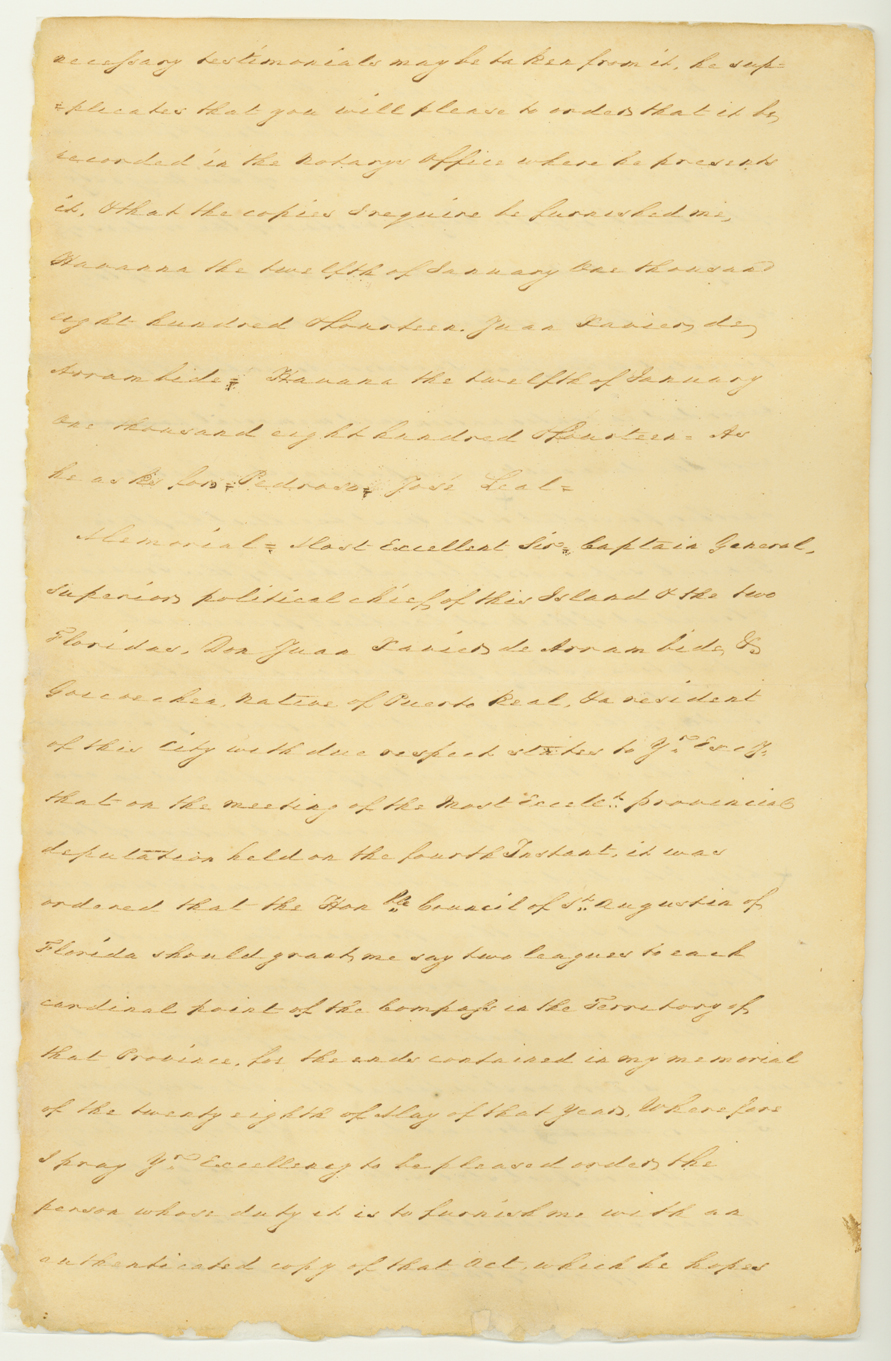 necessary testimonials may be taken from it, he sup=
=plicates that you will please to order that it be
recorded in the Notarys Office where he presents
it, & that the copies I require be furnished me,
Havanna the twelfth of January One thousand
eight hundred & fourteen. Juan Xavier de
Arrambide = Havana the twelfth of January
One thousand eight hundred & fourteen = As
he asks for = Pedroso = José Leal =
Memorial = Most Excellent Sir = Captain General,
superior political chief of this Island & the two
Floridas, Don Juan Xavier de Arrambide &
Goicoechea, native of Puerto Real, & a resident
of this City with due respect states to Yr. Excy.
that on the meeting of the Most Excelt. provincial
deputation held on the fourth Instant, it was
ordered that the Honble Council of St. Augustin of
Florida should grant me say two leagues to each
cardinal point of the Compass in the Territory of
that Province, for the ends contained in my memorial
of the twenty eighth of May of that year, Wherefore
I pray Yr. Excellency to be pleased order the
person whose duty it is to furnish me with an
authenticated copy of that Act, which he hopes